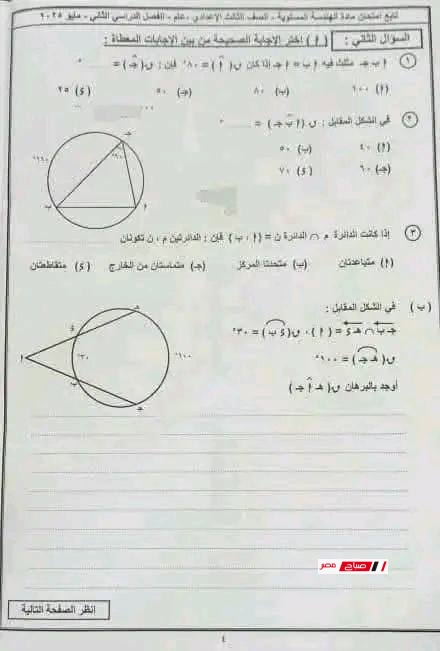 تابع امتحان مادة الهندسة المستوية - الصف الثالث الإعدادي - عام - الفصل الدراسي الثاني - مايو ٢٠٢٥
السؤال الثاني : ( أ ) اختر الإجابة الصحيحة من بين الإجابات المعطاة :
١ أ ب جـ مثلث فيه أ ب = أ جـ إذا كان ق( أ ) = ٨٠° فإن : ق( جـ ) =
( أ ) ١٠٠ (ب) ٨٠ (جـ) ٥٠ ( ء ) ٢٥
٢ في الشكل المقابل : ق ( أ ب جـ ) =
( أ ) ٤٠ (ب) ٥٠
(جـ) ٦٠ ( ء ) ٧٠
جـ
ب
أ
٣ إذا كانت الدائرة م ∩ الدائرة ن = { أ ، ب } فإن : الدائرتين م ، ن تكونان
( أ ) متباعدتان (ب) متحدتا المركز (جـ) متماستان من الخارج ( ء ) متقاطعتان
( ب ) في الشكل المقابل :
جـ ب ∩ هـ ء = { أ } ، ق( ء ب ) = ٣٠°
ق( هـ جـ ) = ١٠٠°
أوجد بالبرهان ق( هـ أ جـ )
هـ
ء
أ
٣٠°
١٠٠°
ب
جـ
صباح مصر
انظر الصفحة التالية
٤